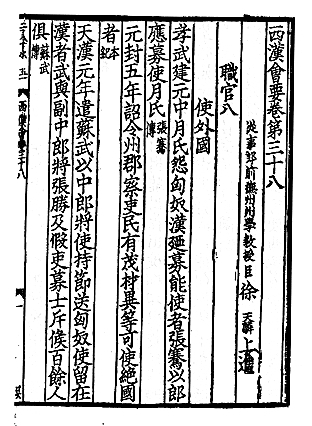 西漢會要卷第三十八
從事郎前撫州州學教授臣徐天麟上進
職官八
使外國
孝武建元中月氏怨匈奴漢廼募能使者張騫以郎
應募使月氏張騫傳
元封五年詔令州郡察吏民有茂材異等可使絶國
者本紀
天漢元年遣蘇武以中郎將使持節送匈奴使留在
漢者武與副中郎將張勝及假吏募士斥候百餘人
俱蘇武傳
西漢會要三十八
一